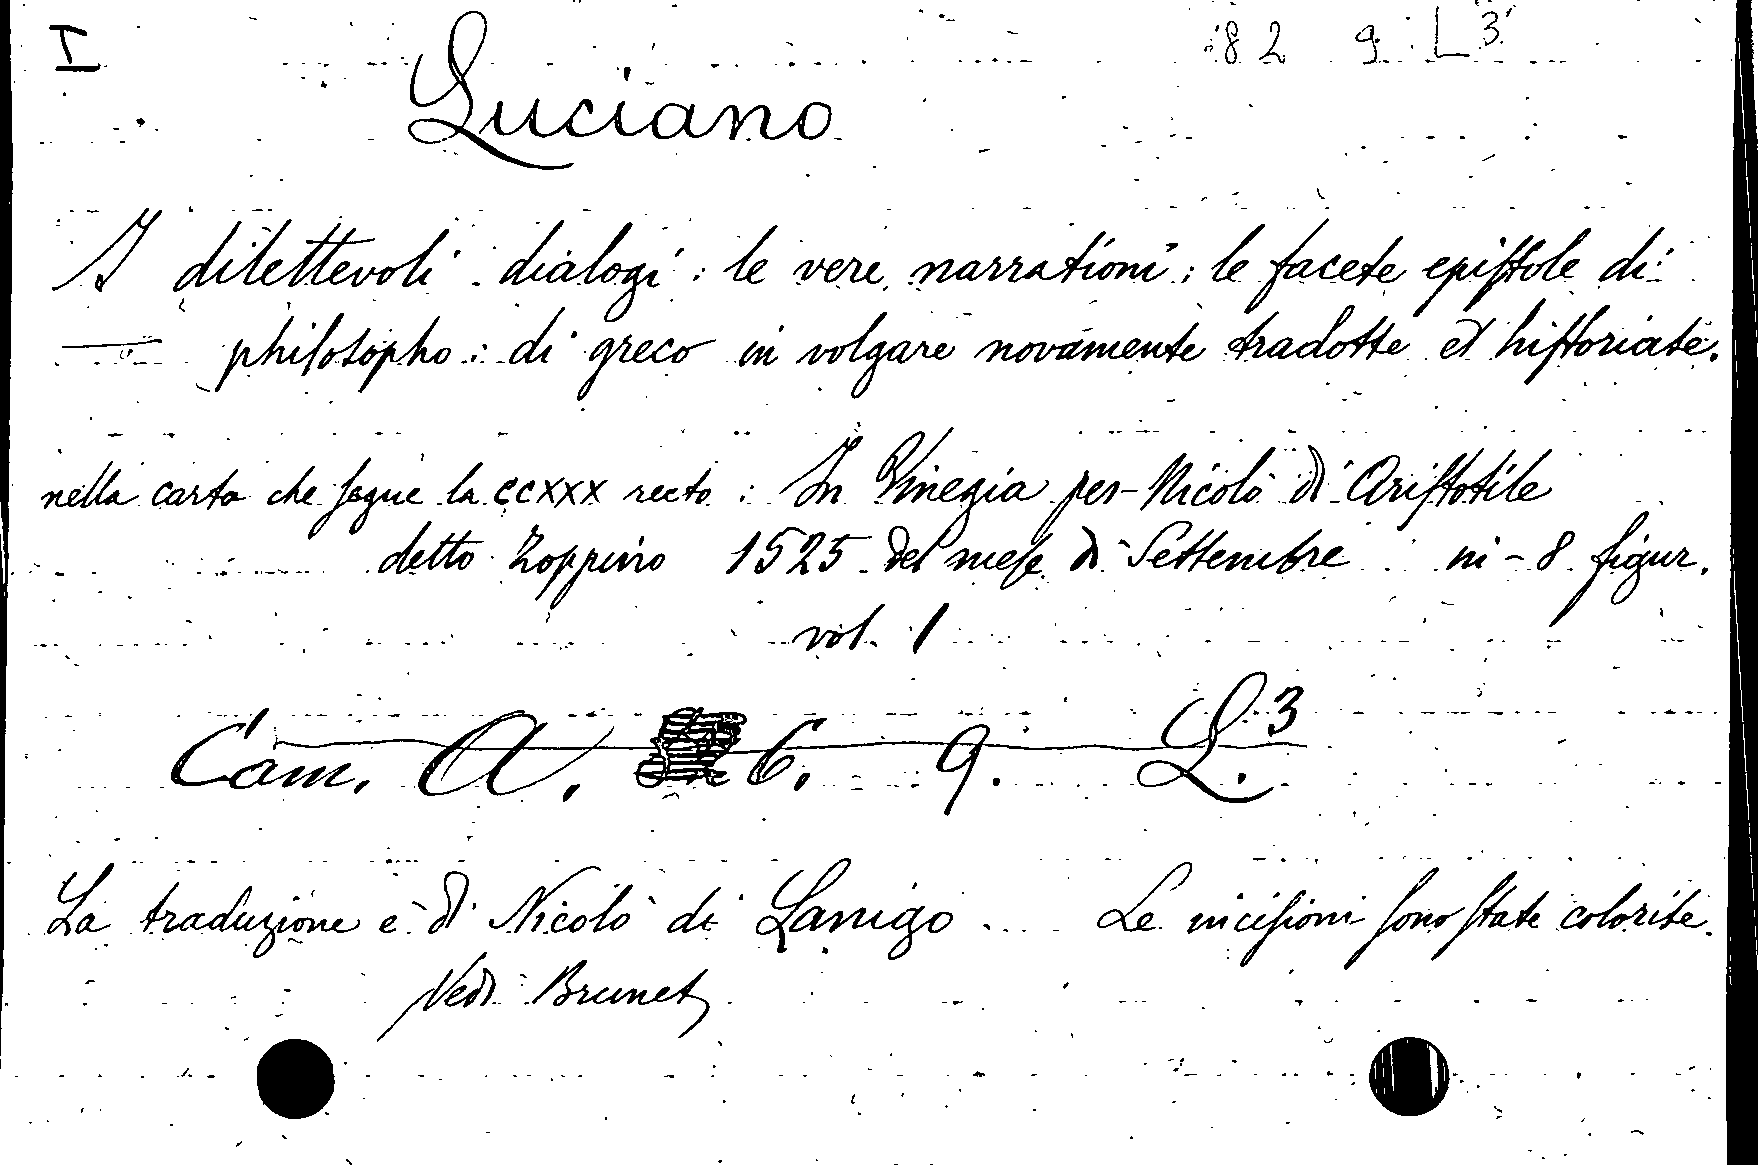 I
82 9 L3
Luciano
I dilettevoli dialogi : le vere narrationi : le facete epiſtole di
— philosopho : di greco in volgare novamente tradotte et hiſtoriate.
nella carta che ſegue la CCXXX recto : In Vinegia per Nicolò di Ariſtotile
detto Zoppino 1525 del meſe di Settembre in-8 figur.
vol. 1
Cam. A. 6. 9. L.3
La traduzione è di Nicolò di Lonigo Le inciſioni ſono ſtate colorite.
Vedi Brunet